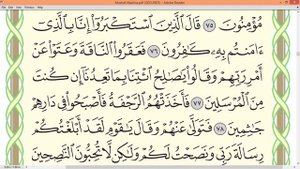 Mushaf Madina.pdf (SECURED) - Adobe Reader
مُؤْمِنُونَ ٧٥ قَالَ ٱلَّذِينَ ٱسْتَكْبَرُوٓا۟ إِنَّا بِٱلَّذِىٓ
ءَامَنتُم بِهِۦ كَٰفِرُونَ ٧٦ فَعَقَرُوا۟ ٱلنَّاقَةَ وَعَتَوْا۟ عَنْ
أَمْرِ رَبِّهِمْ وَقَالُوا۟ يَٰصَٰلِحُ ٱئْتِنَا بِمَا تَعِدُنَآ إِن كُنتَ
مِنَ ٱلْمُرْسَلِينَ ٧٧ فَأَخَذَتْهُمُ ٱلرَّجْفَةُ فَأَصْبَحُوا۟ فِى دَارِهِمْ
جَٰثِمِينَ ٧٨ فَتَوَلَّىٰ عَنْهُمْ وَقَالَ يَٰقَوْمِ لَقَدْ أَبْلَغْتُكُمْ
رِسَالَةَ رَبِّى وَنَصَحْتُ لَكُمْ وَلَٰكِن لَّا تُحِبُّونَ ٱلنَّٰصِحِينَ